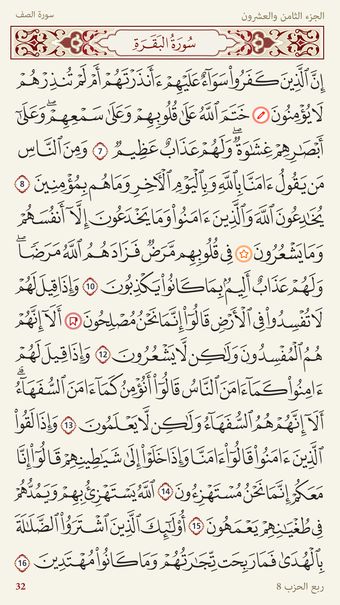 الجزء الثامن والعشرون سورة الصف
سُورَةُ البَقَرَةِ
إِنَّ ٱلَّذِينَ كَفَرُوا۟ سَوَآءٌ عَلَيْهِمْ ءَأَنذَرْتَهُمْ أَمْ لَمْ تُنذِرْهُمْ
لَا يُؤْمِنُونَ خَتَمَ ٱللَّهُ عَلَىٰ قُلُوبِهِمْ وَعَلَىٰ سَمْعِهِمْ ۖ وَعَلَىٰٓ
أَبْصَٰرِهِمْ غِشَٰوَةٌ ۖ وَلَهُمْ عَذَابٌ عَظِيمٌ 7 وَمِنَ ٱلنَّاسِ
مَن يَقُولُ ءَامَنَّا بِٱللَّهِ وَبِٱلْيَوْمِ ٱلْءَاخِرِ وَمَا هُم بِمُؤْمِنِينَ 8
يُخَٰدِعُونَ ٱللَّهَ وَٱلَّذِينَ ءَامَنُوا۟ وَمَا يَخْدَعُونَ إِلَّآ أَنفُسَهُمْ
وَمَا يَشْعُرُونَ فِى قُلُوبِهِم مَّرَضٌ فَزَادَهُمُ ٱللَّهُ مَرَضًا ۖ
وَلَهُمْ عَذَابٌ أَلِيمٌۢ بِمَا كَانُوا۟ يَكْذِبُونَ 10 وَإِذَا قِيلَ لَهُمْ
لَا تُفْسِدُوا۟ فِى ٱلْأَرْضِ قَالُوٓا۟ إِنَّمَا نَحْنُ مُصْلِحُونَ أَلَآ إِنَّهُمْ
هُمُ ٱلْمُفْسِدُونَ وَلَٰكِن لَّا يَشْعُرُونَ 12 وَإِذَا قِيلَ لَهُمْ
ءَامِنُوا۟ كَمَآ ءَامَنَ ٱلنَّاسُ قَالُوٓا۟ أَنُؤْمِنُ كَمَآ ءَامَنَ ٱلسُّفَهَآءُ ۗ
أَلَآ إِنَّهُمْ هُمُ ٱلسُّفَهَآءُ وَلَٰكِن لَّا يَعْلَمُونَ 13 وَإِذَا لَقُوا۟
ٱلَّذِينَ ءَامَنُوا۟ قَالُوٓا۟ ءَامَنَّا وَإِذَا خَلَوْا۟ إِلَىٰ شَيَٰطِينِهِمْ قَالُوٓا۟ إِنَّا
مَعَكُمْ إِنَّمَا نَحْنُ مُسْتَهْزِءُونَ 14 ٱللَّهُ يَسْتَهْزِئُ بِهِمْ وَيَمُدُّهُمْ
فِى طُغْيَٰنِهِمْ يَعْمَهُونَ 15 أُو۟لَٰٓئِكَ ٱلَّذِينَ ٱشْتَرَوُا۟ ٱلضَّلَٰلَةَ
بِٱلْهُدَىٰ فَمَا رَبِحَت تِّجَٰرَتُهُمْ وَمَا كَانُوا۟ مُهْتَدِينَ 16
ربع الحزب 8 32